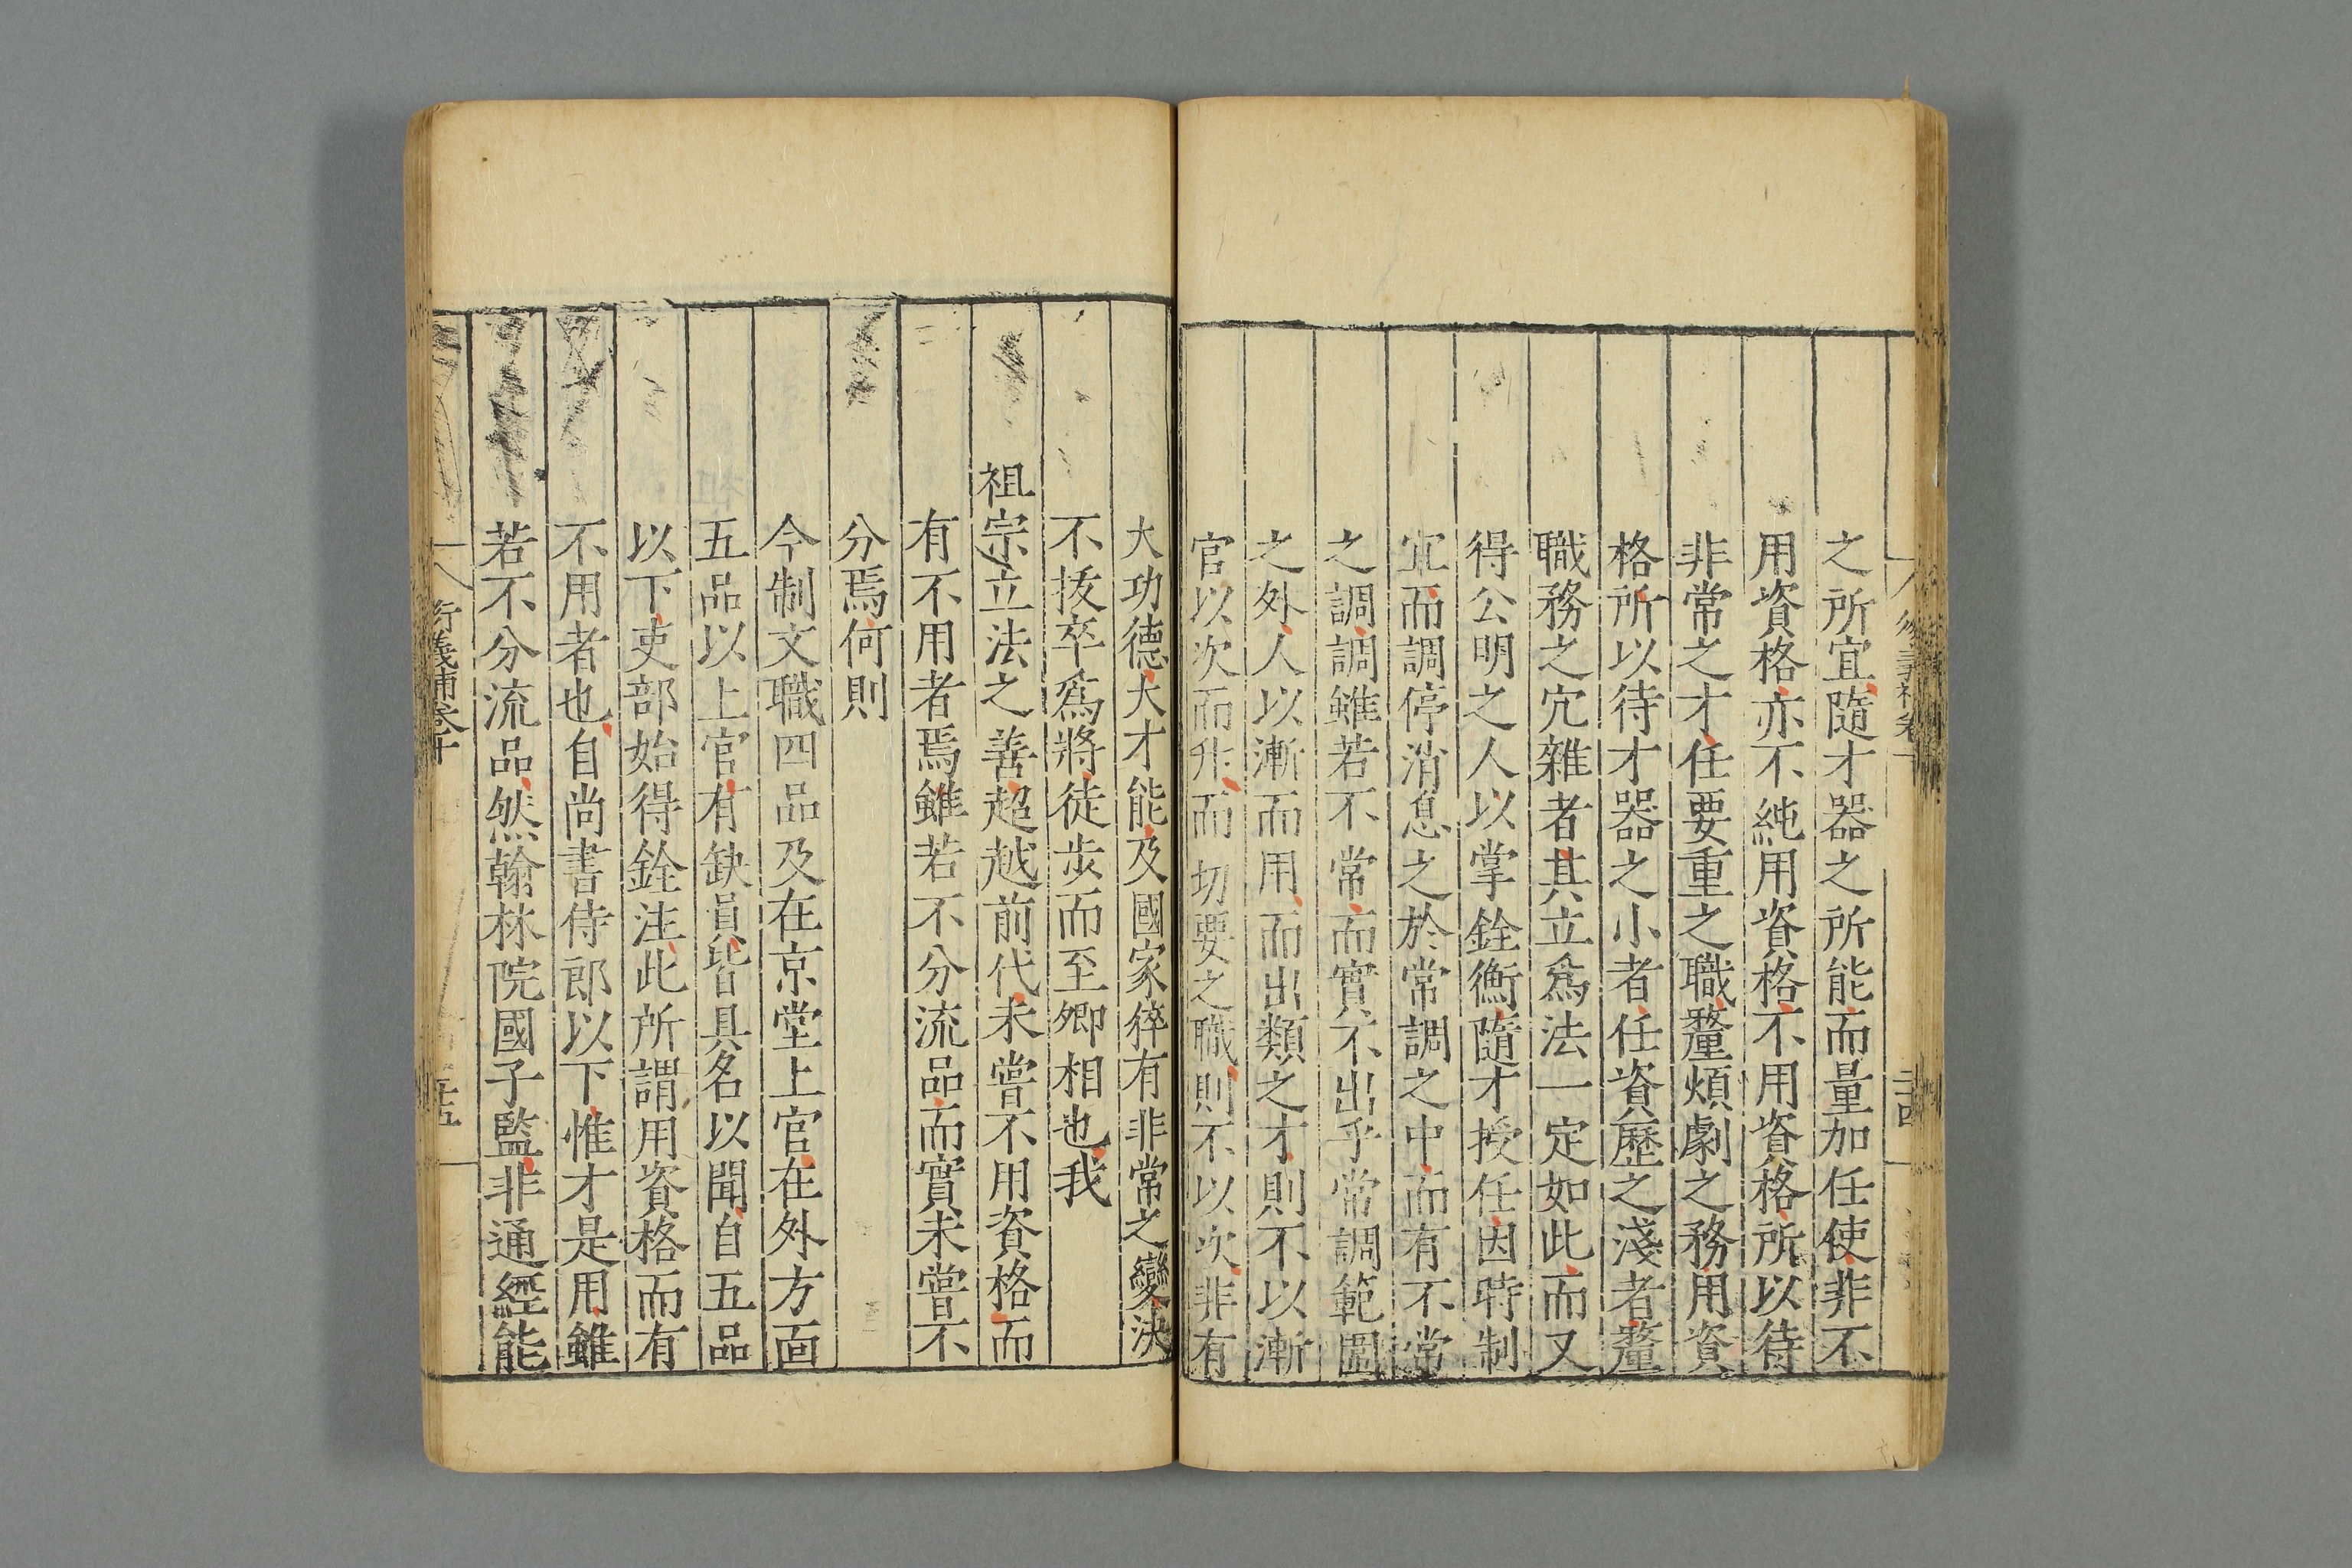 之所宜隨才器之所能而量加任使非不
用資格亦不純用資格不用資格所以待
非常之才任要重之職釐煩劇之務用資
格所以待才器之小者任資歷之淺者釐
職務之冗雜者其立爲法一定如此而又
得公明之人以掌銓衡隨才授任因時制
宜而調停消息之於常調之中而有不常
之調調雖若不常而實不出乎常調範圍
之外人以漸而用而出類之才則不以漸
官以次而升而切要之職則不以次非有
大功德大才能及國家猝有非常之變決
不拔卒爲將徒步而至卿相也我
祖宗立法之善超越前代未嘗不用資格而
有不用者焉雖若不分流品而實未嘗不
分焉何則
今制文職四品及在京堂上官在外方面
五品以上官有缺員皆具名以聞自五品
以下吏部始得銓注此所謂用資格而有
不用者也自尚書侍郎以下惟才是用雖
若不分流品然翰林院國子監非通經能
衍義補卷十